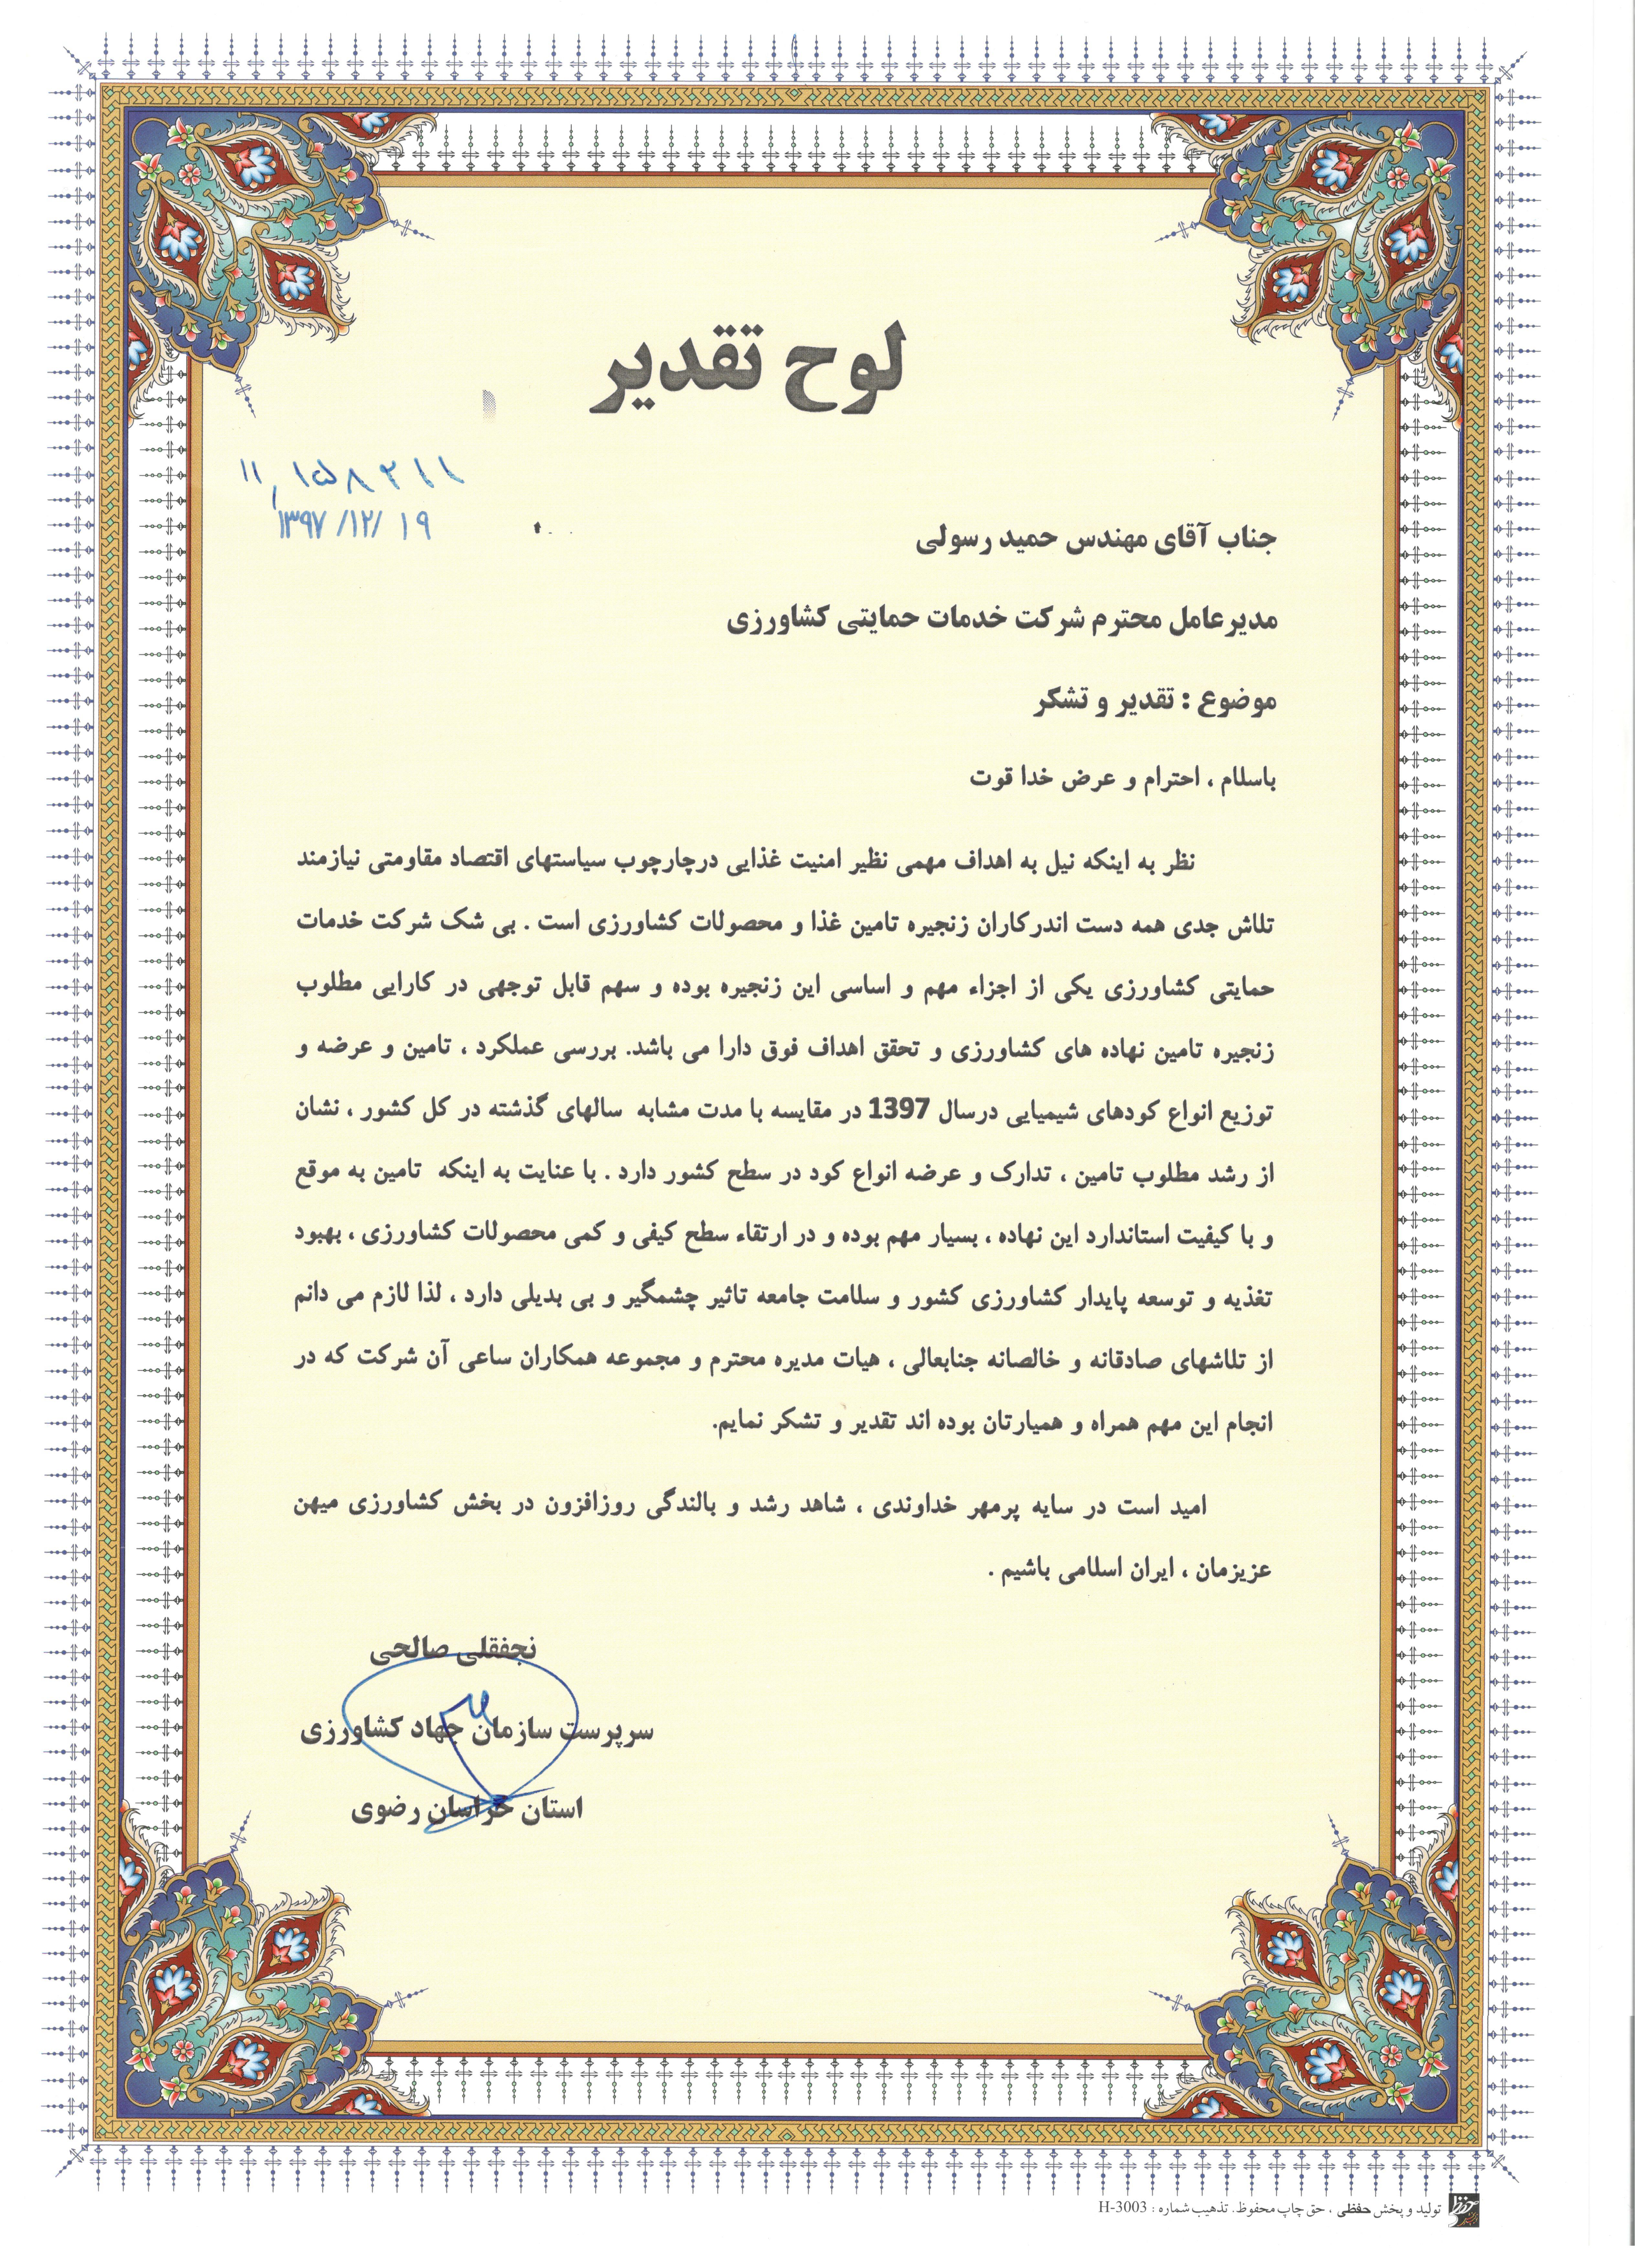 لوح تقدیر
۱۱٫۱۵۸۲۱۱
۱۳۹۷/۱۲/۱۹
جناب آقای مهندس حمید رسولی
مدیرعامل محترم شرکت خدمات حمایتی کشاورزی
موضوع : تقدیر و تشکر
باسلام ، احترام و عرض خدا قوت
نظر به اینکه نیل به اهداف مهمی نظیر امنیت غذایی درچارچوب سیاستهای اقتصاد مقاومتی نیازمند
تلاش جدی همه دست اندرکاران زنجیره تامین غذا و محصولات کشاورزی است . بی شک شرکت خدمات
حمایتی کشاورزی یکی از اجزاء مهم و اساسی این زنجیره بوده و سهم قابل توجهی در کارایی مطلوب
زنجیره تامین نهاده های کشاورزی و تحقق اهداف فوق دارا می باشد. بررسی عملکرد ، تامین و عرضه و
توزیع انواع کودهای شیمیایی درسال 1397 در مقایسه با مدت مشابه سالهای گذشته در کل کشور ، نشان
از رشد مطلوب تامین ، تدارک و عرضه انواع کود در سطح کشور دارد . با عنایت به اینکه تامین به موقع
و با کیفیت استاندارد این نهاده ، بسیار مهم بوده و در ارتقاء سطح کیفی و کمی محصولات کشاورزی ، بهبود
تغذیه و توسعه پایدار کشاورزی کشور و سلامت جامعه تاثیر چشمگیر و بی بدیلی دارد ، لذا لازم می دانم
از تلاشهای صادقانه و خالصانه جنابعالی ، هیات مدیره محترم و مجموعه همکاران ساعی آن شرکت که در
انجام این مهم همراه و همیارتان بوده اند تقدیر و تشکر نمایم.
امید است در سایه پرمهر خداوندی ، شاهد رشد و بالندگی روزافزون در بخش کشاورزی میهن
عزیزمان ، ایران اسلامی باشیم .
نجفقلی صالحی
سرپرست سازمان جهاد کشاورزی
استان خراسان رضوی
تولید و پخش حفظی ، حق چاپ محفوظ. تذهیب شماره : H-3003